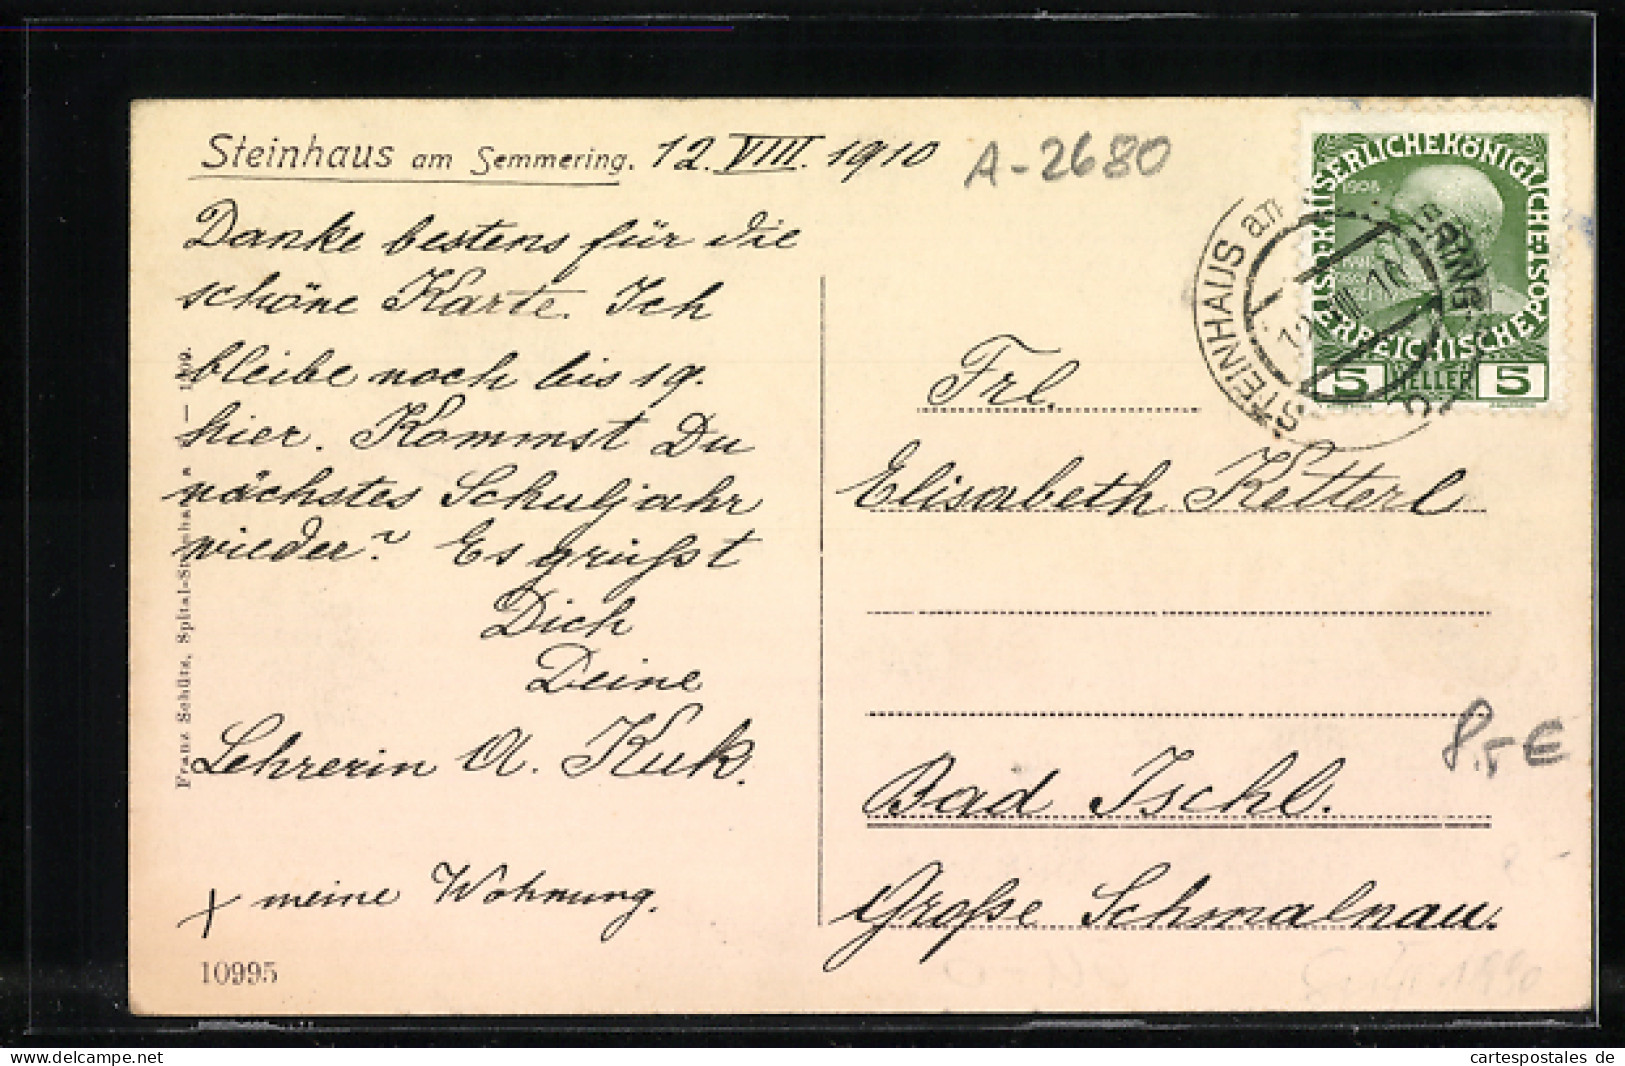 Steinhaus am Semmering. 12. VIII. 1910
A-2680
Danke bestens für die
schöne Karte. Ich
bleibe noch bis 19.
hier. Kommst Du
nächstes Schuljahr
wieder? Es grüßt
Dich
Deine
Lehrerin A. Kuk.
+ meine Wohnung.
10995
Franz Schütz, Spital-Steinhaus — 1909.
KAISERLICHEKÖNIGLICHE ÖSTERREICHISCHE POST
1908
5 HELLER 5
STEINHAUS am
12 VIII 10
Frl.
Elisabeth Ketterl
Bad Ischl.
Große Schmalnau.
8.5 €
www.delcampe.net
cartespostales_de